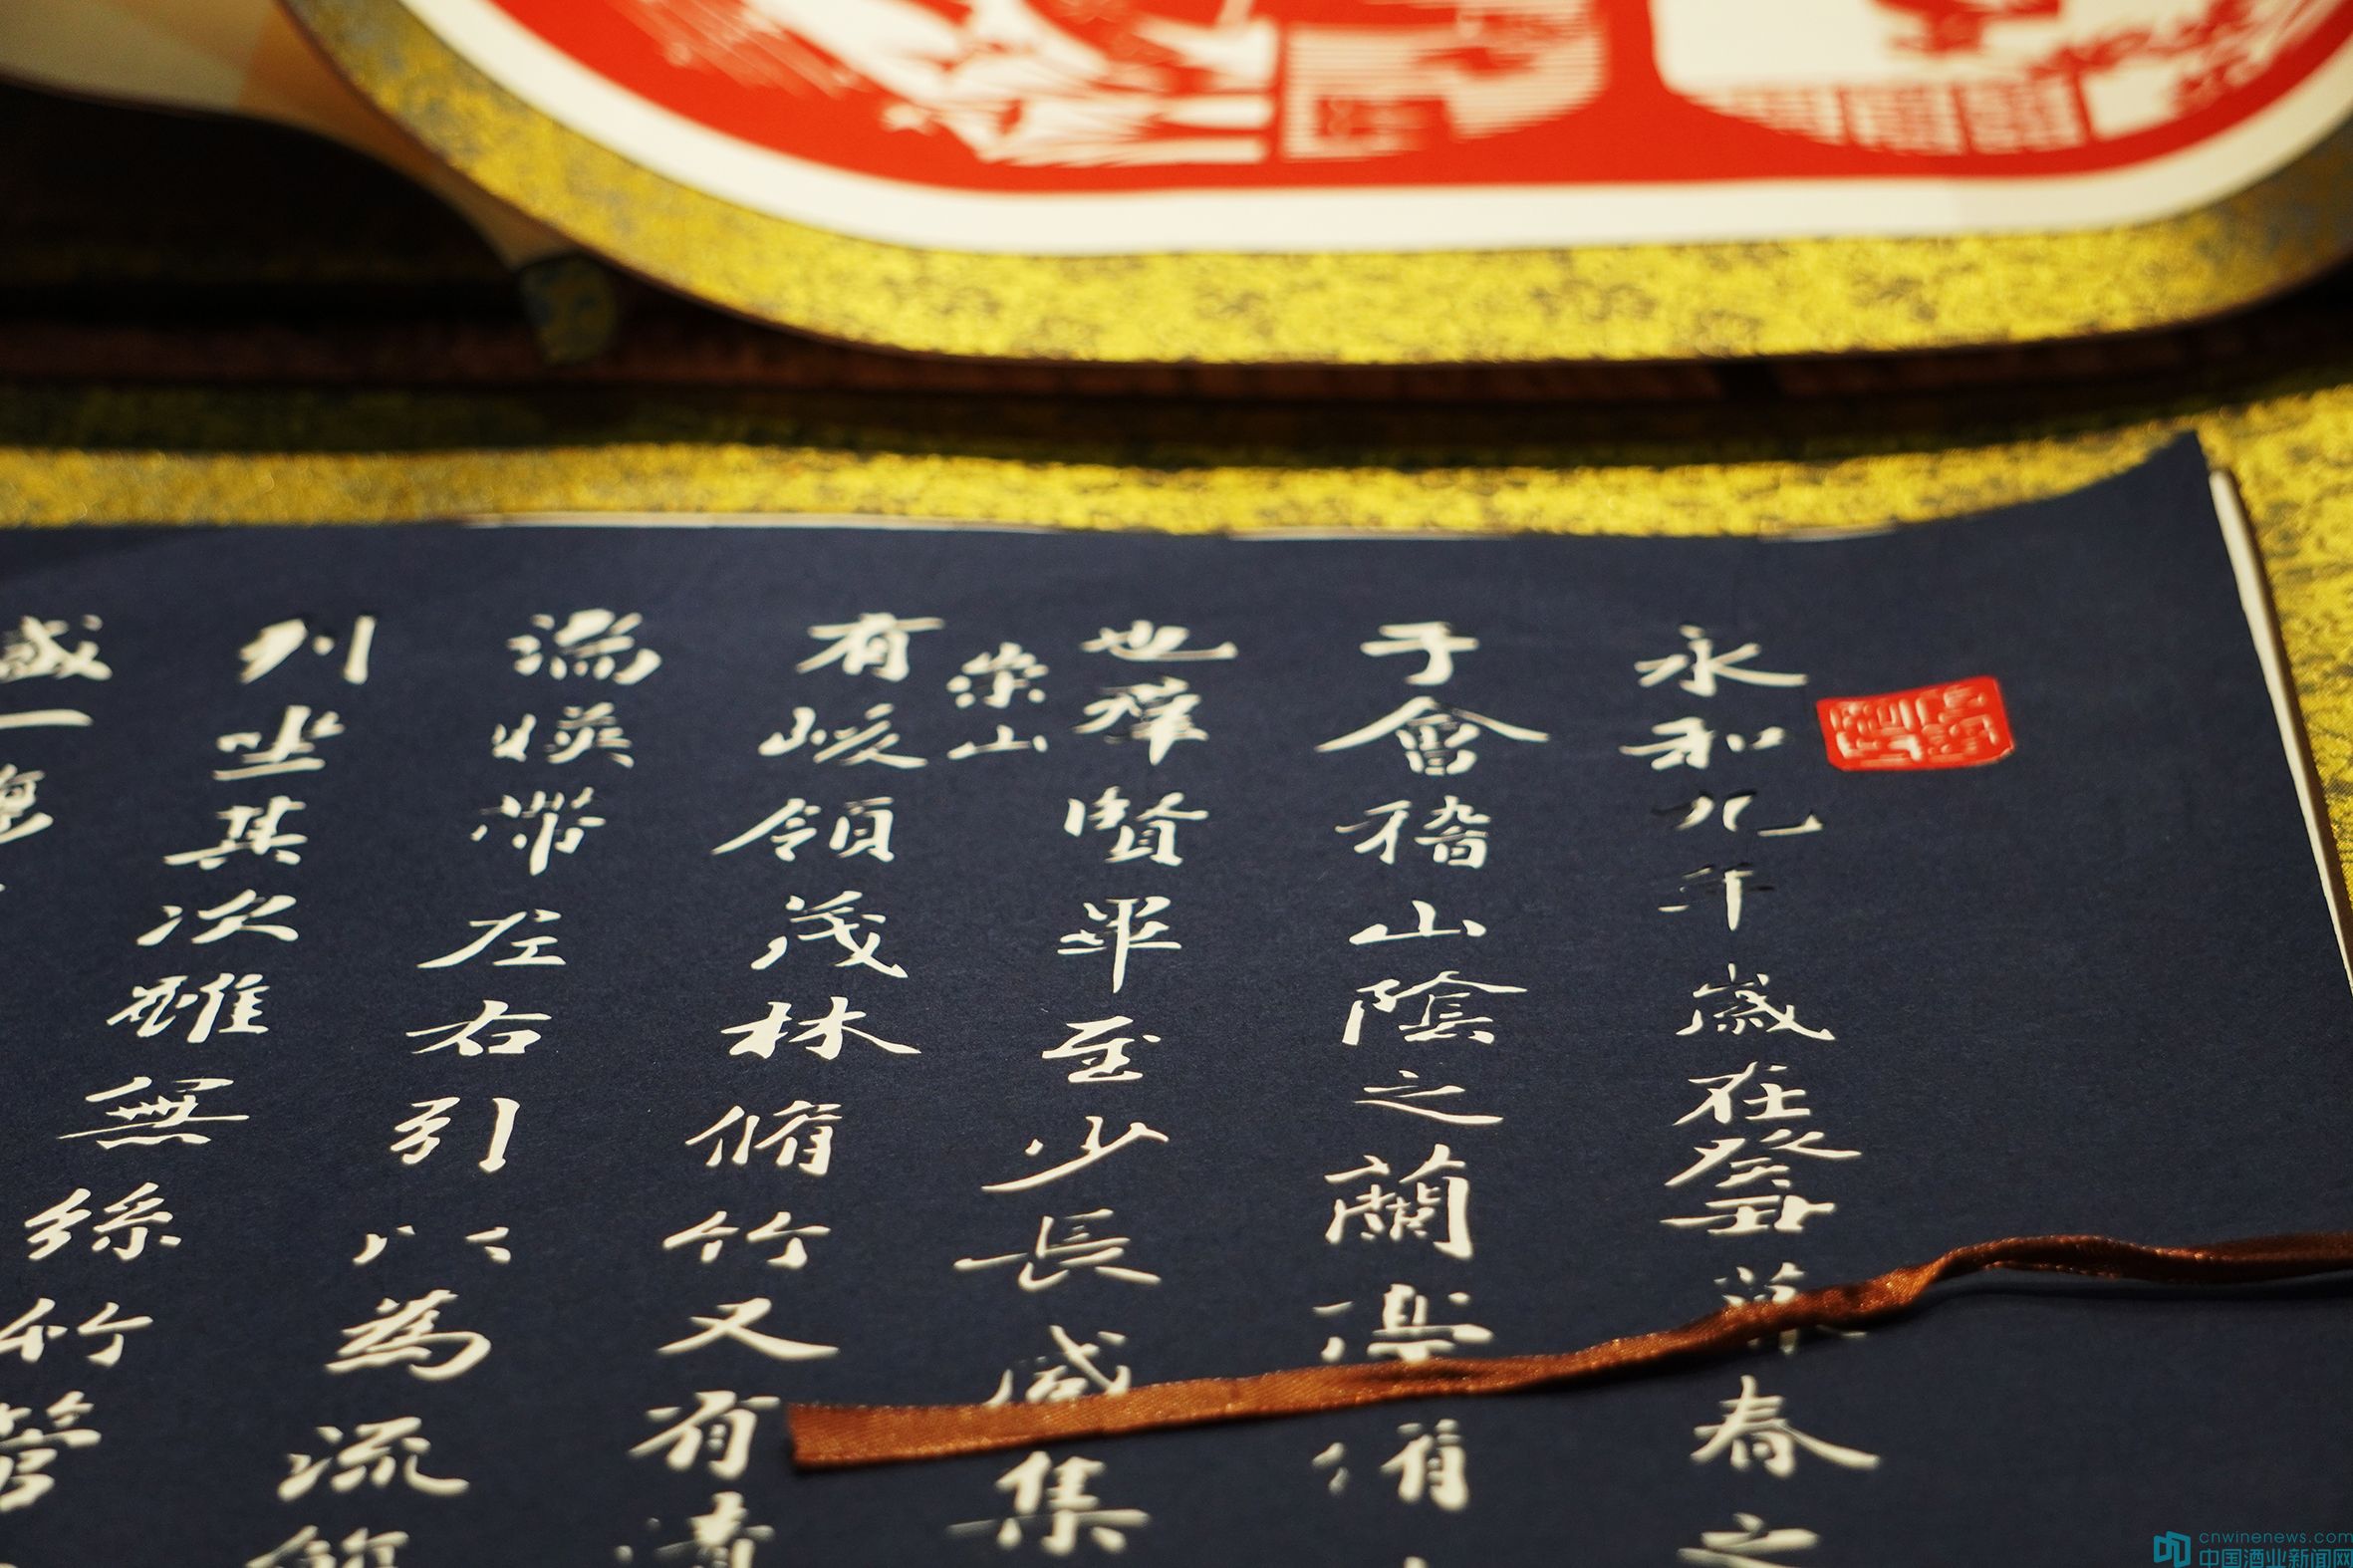 永和九年歲在癸丑暮春之
于會稽山陰之蘭亭脩
也群賢畢至少長咸集
崇山
有峻領茂林脩竹又有清
流暎帶左右引以為流觴
列坐其次雖無絲竹管
盛一觴
cnwinenews.com
中国酒业新闻网